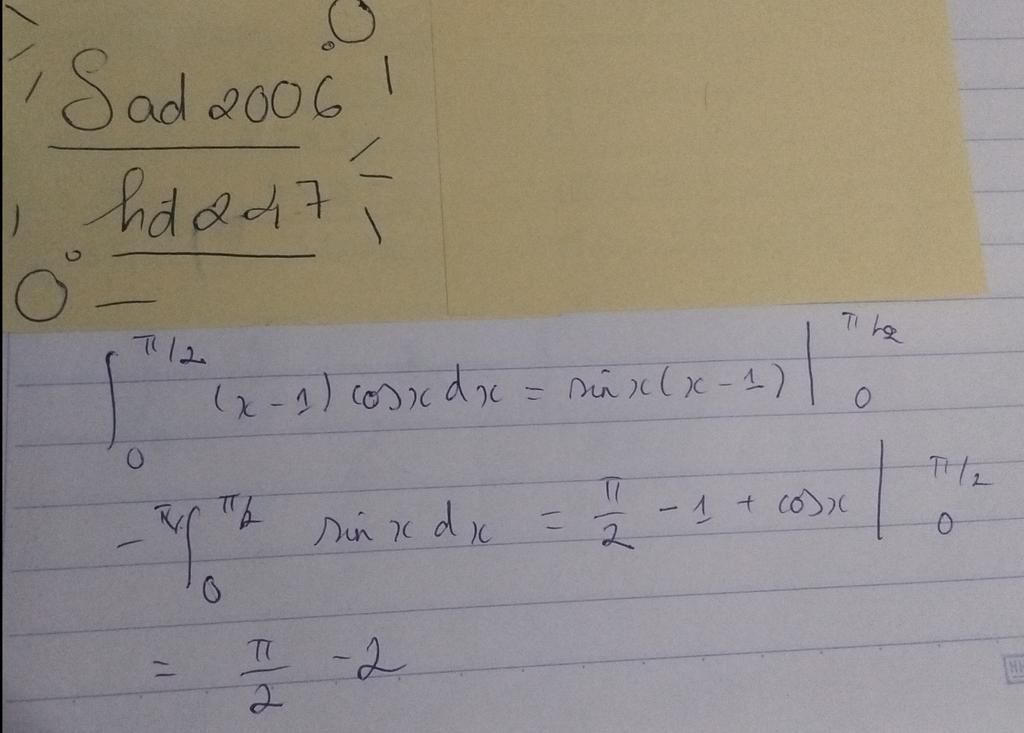 Sad2006
hd247
∫₀^{π/2} (x-1) cosx dx = sin x(x-1) |₀^{π/2}
- ∫₀^{π/2} sin x dx = π/2 - 1 + cosx |₀^{π/2}
= π/2 - 2